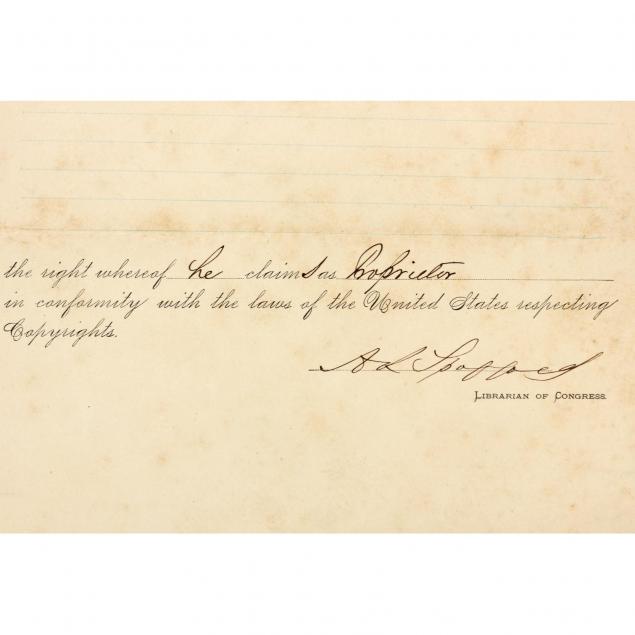 the right whereof he claims as Proprietor
in conformity with the laws of the United States respecting
Copyrights.
A R Spofford
LIBRARIAN OF CONGRESS.